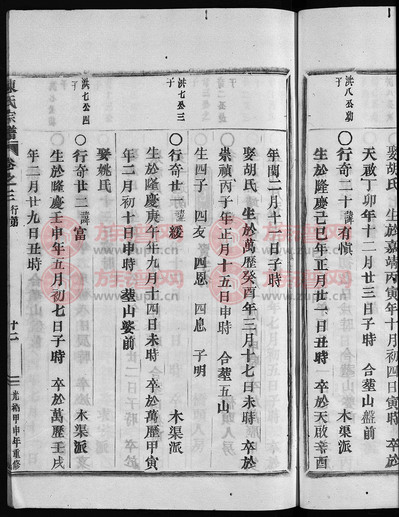 洪八公勸
子
娶胡氏 生於嘉靖丙寅年十月初四日子時 卒於
天啟丁卯年十二月廿三日子時 合塟山盤前
〇行奇二十諱有慎 木渠派
生於隆慶己巳年正月廿一日丑時 卒於天啟辛酉
年閏二月十一日子時
娶胡氏 生於萬歷癸酉年三月十七日未時 卒於
崇禎丙子年正月十五日申時 合塟五山
生四子 四友 四恩 四息 子明
洪七公三
子
〇行奇廿一 緩 木渠派
生於隆慶庚午年九月十四日未時 卒於萬歷甲寅
年二月初十日申時 塟山婆前
娶姚氏
洪七公四
子
〇行奇廿二諱富 木渠派
生於隆慶壬申年五月初七日子時 卒於萬歷壬戌
年二月廿九日丑時
陳氏宗譜 卷之三 行第 十二 光緒甲申年重修